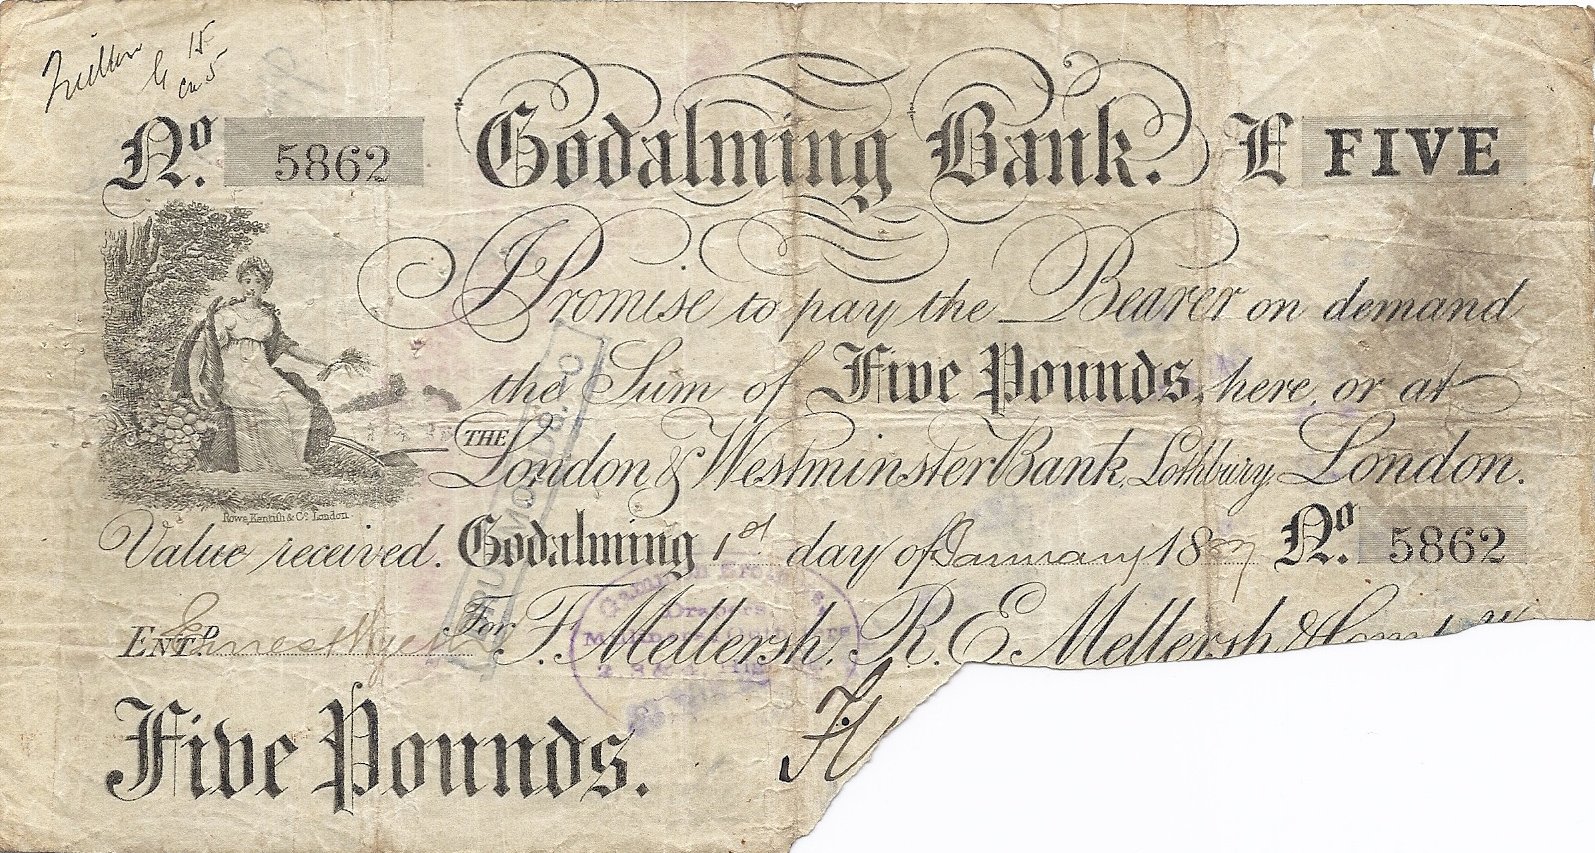 No. 5862 Godalming Bank. £ FIVE
I Promise to pay the Bearer on demand
the Sum of Five Pounds, here, or at
THE London & Westminster Bank, Lothbury London.
Rowe, Kentish & Co. London
Value received. Godalming 1st day of January 1887 No. 5862
ENTD. Ernest For F. Mellersh, R. E. Mellersh &
Five Pounds.